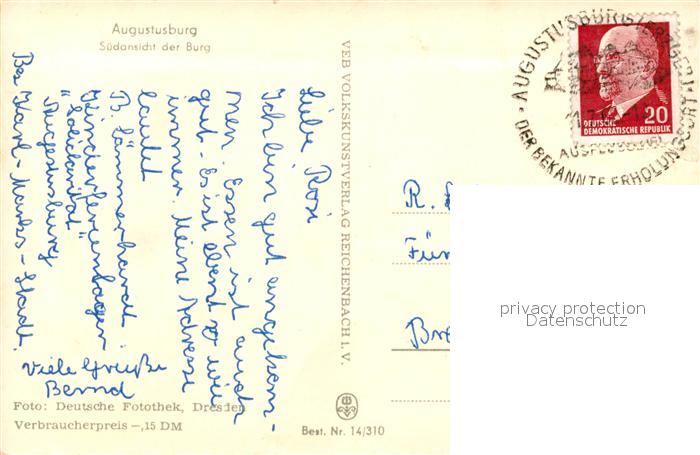 Augustusburg
Südansicht der Burg
Liebe Rosi
Ich bin gut angekom-
men. Essen ist auch
gut. Es ist ebenst so wie
immer. Meine Adresse
lautet
B. Lämmerhardt
Kinderferienlager
"Solidarität"
Augustusburg
Bez Karl-Marks-Stadt.
Viele Grüße
Bernd
Foto: Deutsche Fotothek, Dresden
Verbraucherpreis -,15 DM
VEB VOLKSKUNSTVERLAG REICHENBACH i. V.
Best. Nr. 14/310
AUGUSTUSBURG (ERZGEB)
DER BEKANNTE ERHOLUNGSORT
20
DEUTSCHE
DEMOKRATISCHE REPUBLIK
R.
Für
Bre
privacy protection
Datenschutz